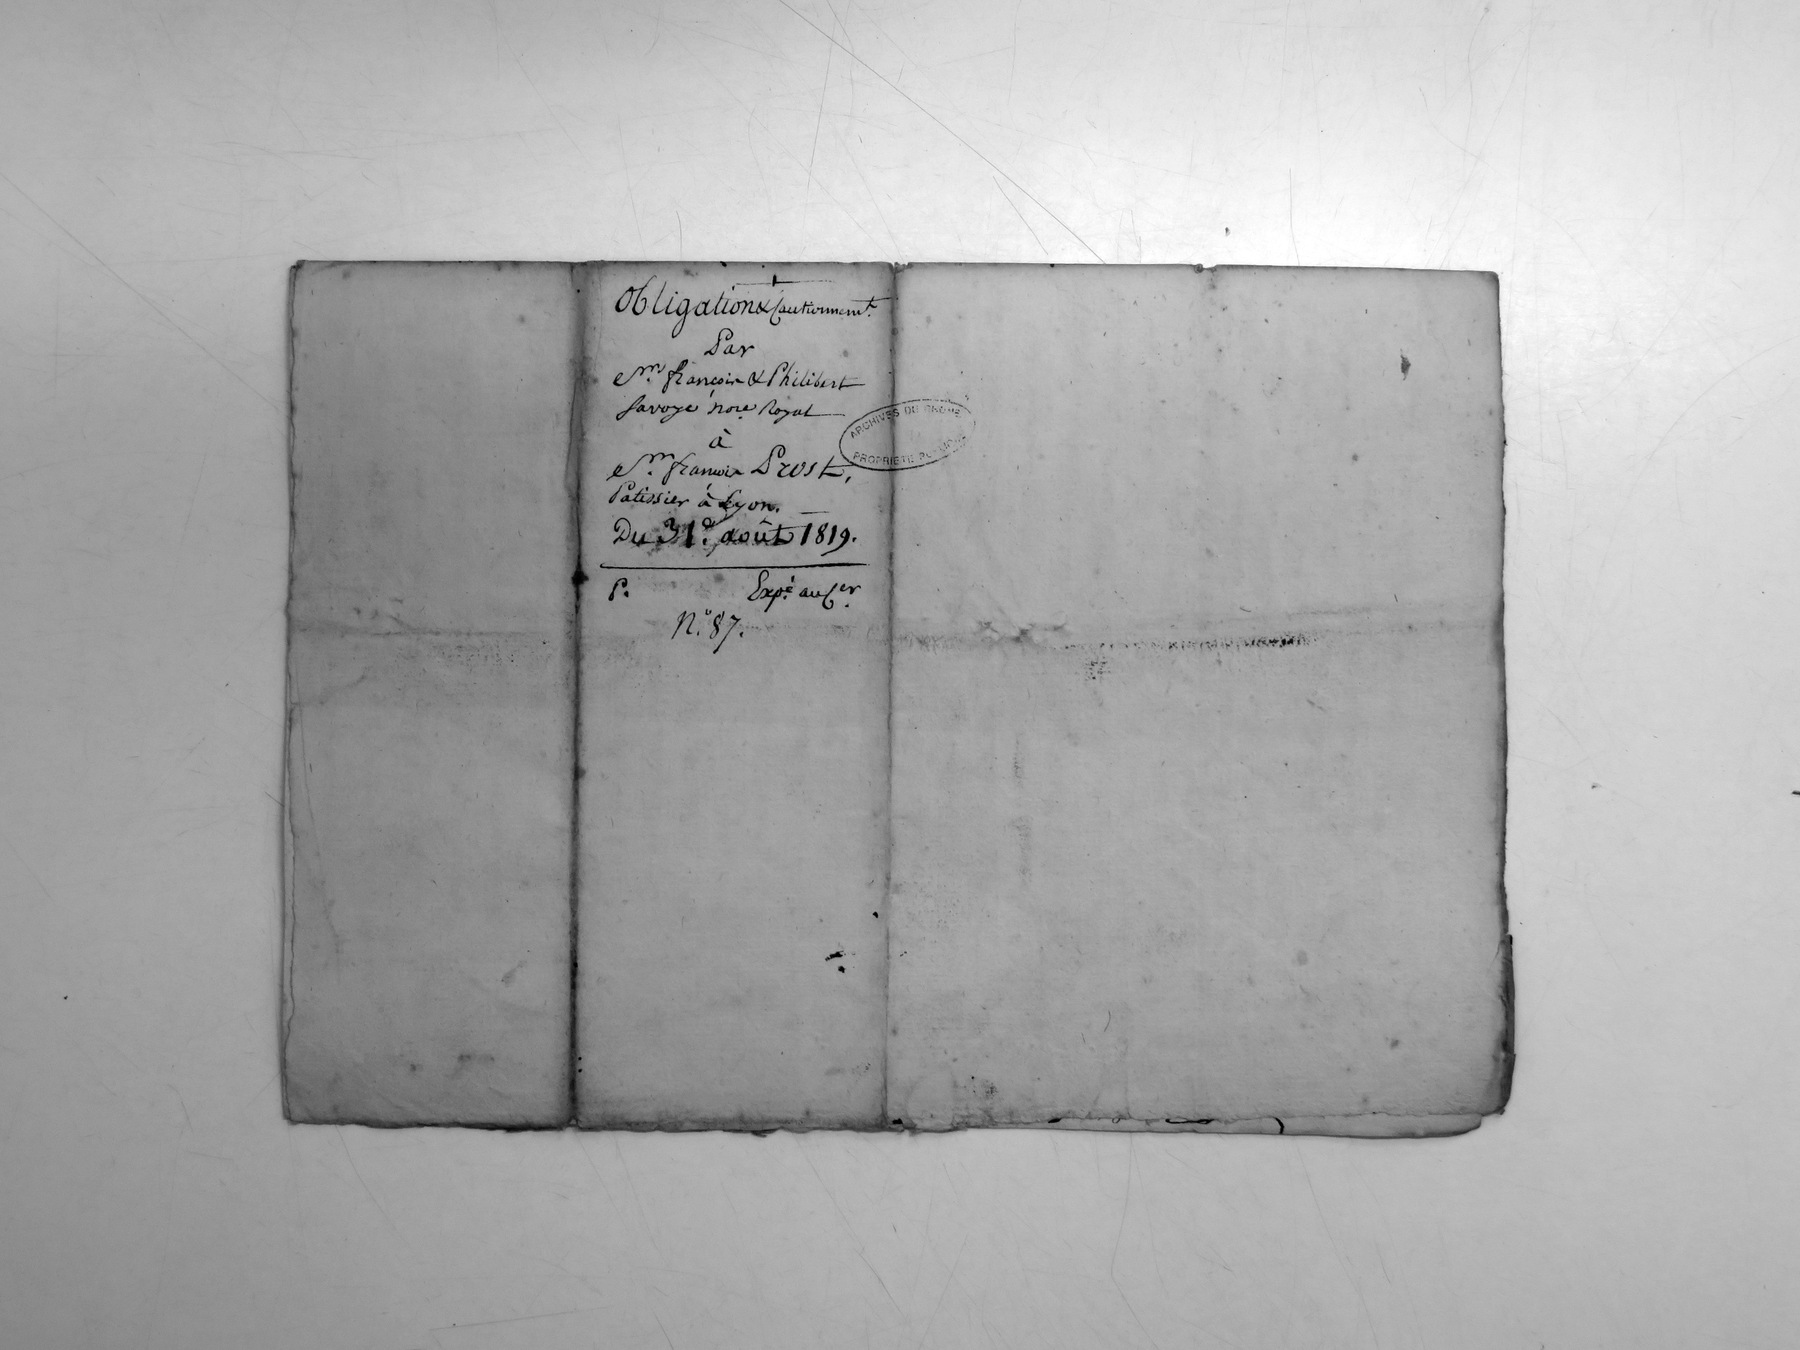 Obligation & Cautionnemt.
Par
Mrs. françois & Philibert
Savoye nore Royal
à
Mr. françois Prost,
Patissier à Lyon.
Du 31. août 1819.
P. Expé. au Cer.
N.° 87.
ARCHIVES DU RHONE
PROPRIETE PUBLIQUE